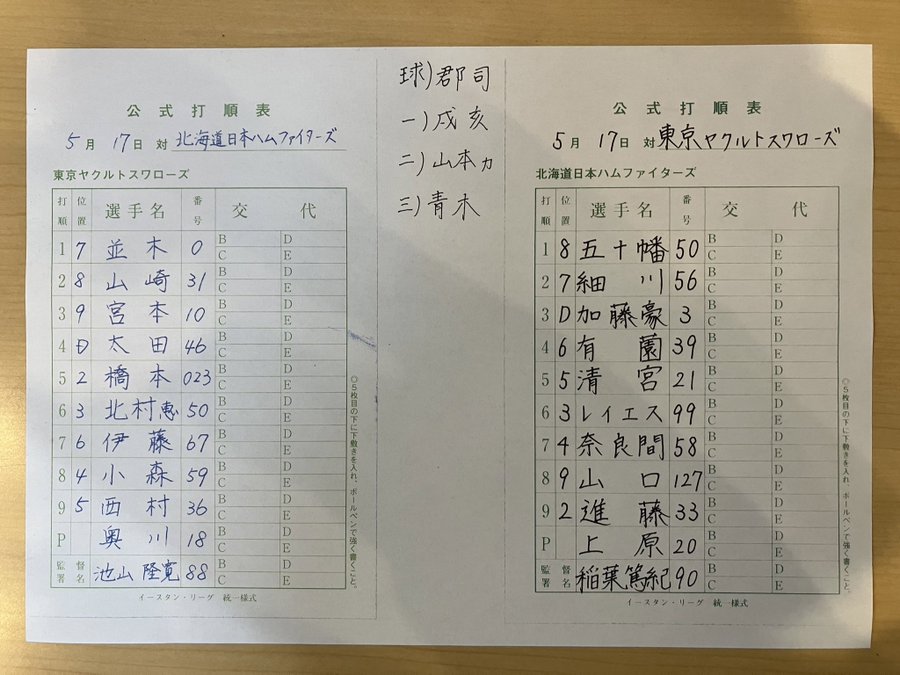 公式打順表
5月 17日 対 北海道日本ハムファイターズ
東京ヤクルトスワローズ
打順 位置 選手名 番号 交代
1 7 並木 0 B C D E
2 8 山崎 31 B C D E
3 9 宮本 10 B C D E
4 D 太田 46 B C D E
5 2 橋本 023 B C D E
6 3 北村恵 50 B C D E
7 6 伊藤 67 B C D E
8 4 小森 59 B C D E
9 5 西村 36 B C D E
P 奥川 18 B C D E
監督署名 池山隆寛 88 B C D E
イースタン・リーグ 統一様式
◎5枚目の下に下敷きを入れ、ボールペンで強く書くこと。
球)郡司
一)戌亥
二)山本力
三)青木
公式打順表
5月 17日 対 東京ヤクルトスワローズ
北海道日本ハムファイターズ
打順 位置 選手名 番号 交代
1 8 五十幡 50 B C D E
2 7 細川 56 B C D E
3 D 加藤豪 3 B C D E
4 6 有薗 39 B C D E
5 5 清宮 21 B C D E
6 3 レイエス 99 B C D E
7 4 奈良間 58 B C D E
8 9 山口 127 B C D E
9 2 進藤 33 B C D E
P 上原 20 B C D E
監督署名 稲葉篤紀 90 B C D E
イースタン・リーグ 統一様式
◎5枚目の下に下敷きを入れ、ボールペンで強く書くこと。